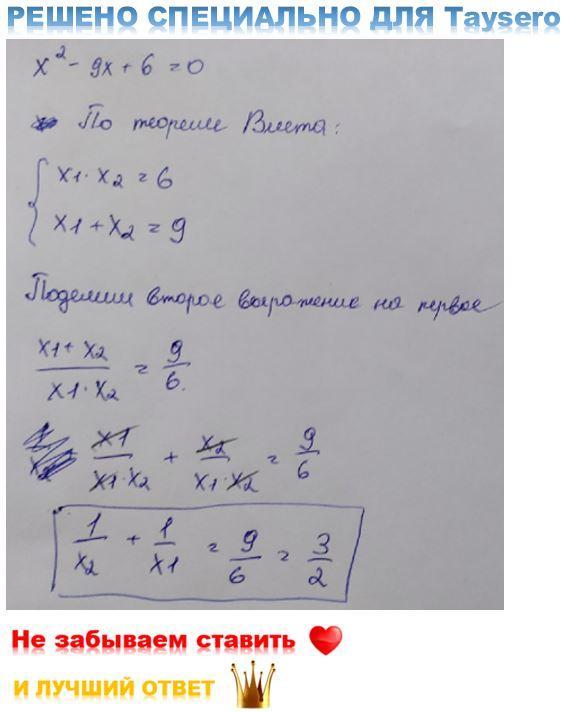 РЕШЕНО СПЕЦИАЛЬНО ДЛЯ Taysero
x² - 9x + 6 = 0
По теореме Виета:
{ x1 · x2 = 6
x1 + x2 = 9
Поделим второе выражение на первое
(x1 + x2)/(x1 · x2) = 9/6.
x1/(x1 · x2) + x2/(x1 · x2) = 9/6
1/x2 + 1/x1 = 9/6 = 3/2
Не забываем ставить
И ЛУЧШИЙ ОТВЕТ